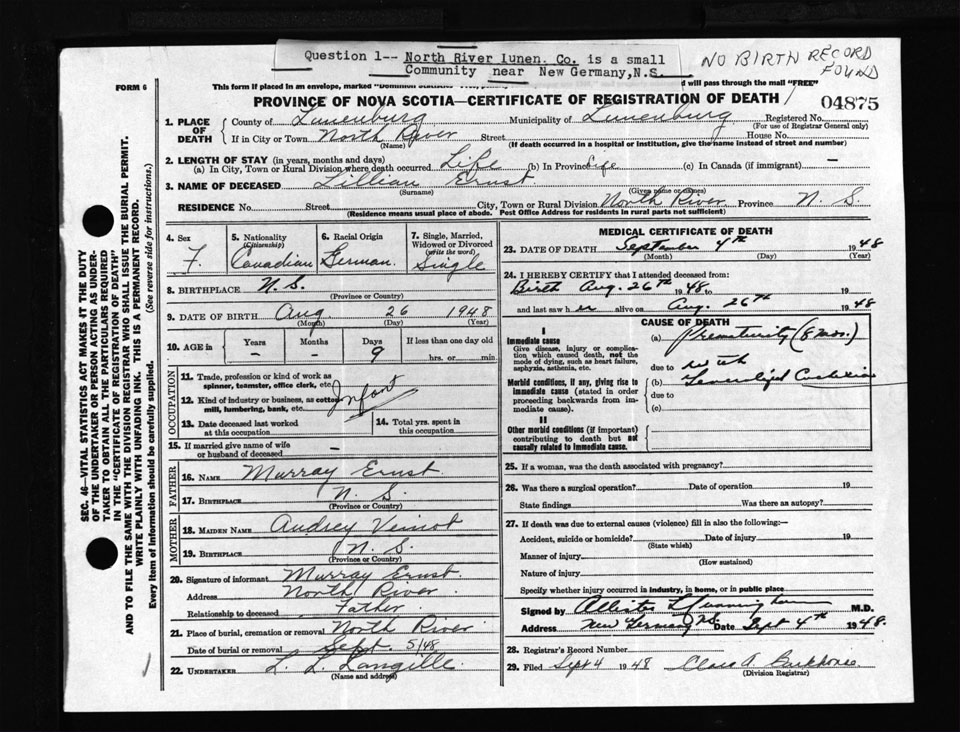 Question 1-- North River Lunen. Co. is a small
Community near New Germany, N.S.
NO BIRTH RECORD
FOUND
FORM 6
This form if placed in an envelope, marked
will pass through the mail "FREE"
PROVINCE OF NOVA SCOTIA—CERTIFICATE OF REGISTRATION OF DEATH
04875
1. PLACE OF DEATH
County of Lunenburg Municipality of Lunenburg Registered No.
(For use of Registrar General only)
If in City or Town North River Street House No.
(Name) (If death occurred in a hospital or institution, give the name instead of street and number)
2. LENGTH OF STAY (in years, months and days)
(a) In City, Town or Rural Division where death occurred Life (b) In Province Life (c) In Canada (if immigrant) —
3. NAME OF DECEASED Lillian Ernst
(Surname) (Given name or names)
RESIDENCE No. Street City, Town or Rural Division North River Province N. S.
(Residence means usual place of abode. Post Office Address for residents in rural parts not sufficient)
SEC. 46—VITAL STATISTICS ACT MAKES IT THE DUTY
OF THE UNDERTAKER OR PERSON ACTING AS UNDER-
TAKER TO OBTAIN ALL THE PARTICULARS REQUIRED
IN THE "CERTIFICATE OF REGISTRATION OF DEATH"
AND TO FILE THE SAME WITH THE DIVISION REGISTRAR WHO SHALL ISSUE THE BURIAL PERMIT.
WRITE PLAINLY WITH UNFADING INK. THIS IS A PERMANENT RECORD.
Every item of information should be carefully supplied. (See reverse side for instructions.)
4. Sex
F.
5. Nationality
(Citizenship)
Canadian
6. Racial Origin
German
7. Single, Married,
Widowed or Divorced
(write the word)
Single
8. BIRTHPLACE N. S.
(Province or Country)
9. DATE OF BIRTH Aug. 26 1948
(Month) (Day) (Year)
10. AGE in Years Months Days If less than one day old
- - 9 hrs. or min.
OCCUPATION
11. Trade, profession or kind of work as
spinner, teamster, office clerk, etc.
Infant
12. Kind of industry or business, as cotton
mill, lumbering, bank, etc.
13. Date deceased last worked
at this occupation
14. Total yrs. spent in
this occupation
15. If married give name of wife
or husband of deceased —
FATHER
16. NAME Murray Ernst
17. BIRTHPLACE N. S.
(Province or Country)
MOTHER
18. MAIDEN NAME Audrey Veinot
19. BIRTHPLACE N. S.
(Province or Country)
20. Signature of informant Murray Ernst
Address North River
Relationship to deceased Father
21. Place of burial, cremation or removal North River
Date of burial or removal Sept. 5/48
22. UNDERTAKER L. L. Langille
(Name and address)
MEDICAL CERTIFICATE OF DEATH
23. DATE OF DEATH September 4th 1948
(Month) (Day) (Year)
24. I HEREBY CERTIFY that I attended deceased from:
Birth Aug. 26th 1948 to 19
and last saw her alive on Aug. 26th 1948
CAUSE OF DEATH
I
Immediate cause
Give disease, injury or complica-
tion which caused death, not the
mode of dying, such as heart failure,
asphyxia, asthenia, etc.
(a) Prematurity (8 mos.)
due to with
Morbid conditions, if any, giving rise to
immediate cause (stated in order
proceeding backwards from im-
mediate cause).
(b)
due to
(c)
II
Other morbid conditions (if important)
contributing to death but not
causally related to immediate cause.
25. If a woman, was the death associated with pregnancy?
26. Was there a surgical operation? Date of operation 19
State findings Was there an autopsy?
27. If death was due to external causes (violence) fill in also the following:—
Accident, suicide or homicide? Date of injury 19
(State which)
Manner of injury
(How sustained)
Nature of injury
Specify whether injury occurred in industry, in home, or in public place
Signed by Allister Cunningham M.D.
Address New Germany NS. Date Sept 4th 1948.
28. Registrar's Record Number
29. Filed Sept 4 1948
(Division Registrar)